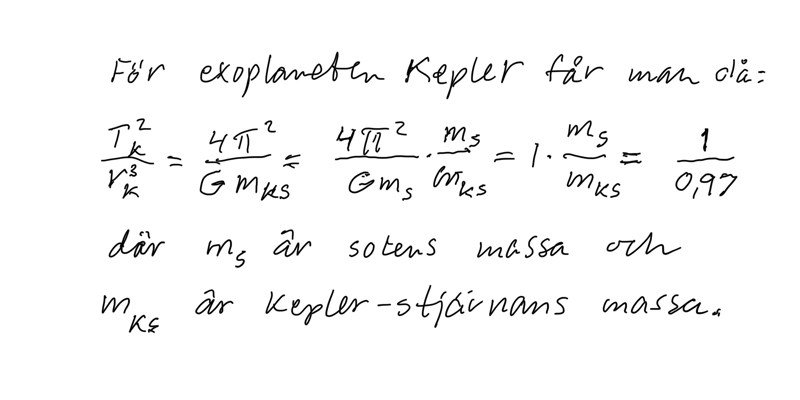 För exoplaneten Kepler får man då:
T_k²/r_k³ = 4π²/(G m_KS) = 4π²/(G m_s) · m_s/m_KS = 1 · m_s/m_KS = 1/0,97
där m_s är solens massa och
m_KS är Kepler-stjärnans massa.